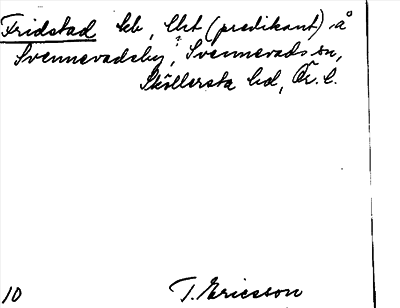 Fridstad kb, lht (predikant) å
Svennevadsby, Svennevads sn,
Sköllersta hd, Ör. l.
10 T. Ericsson